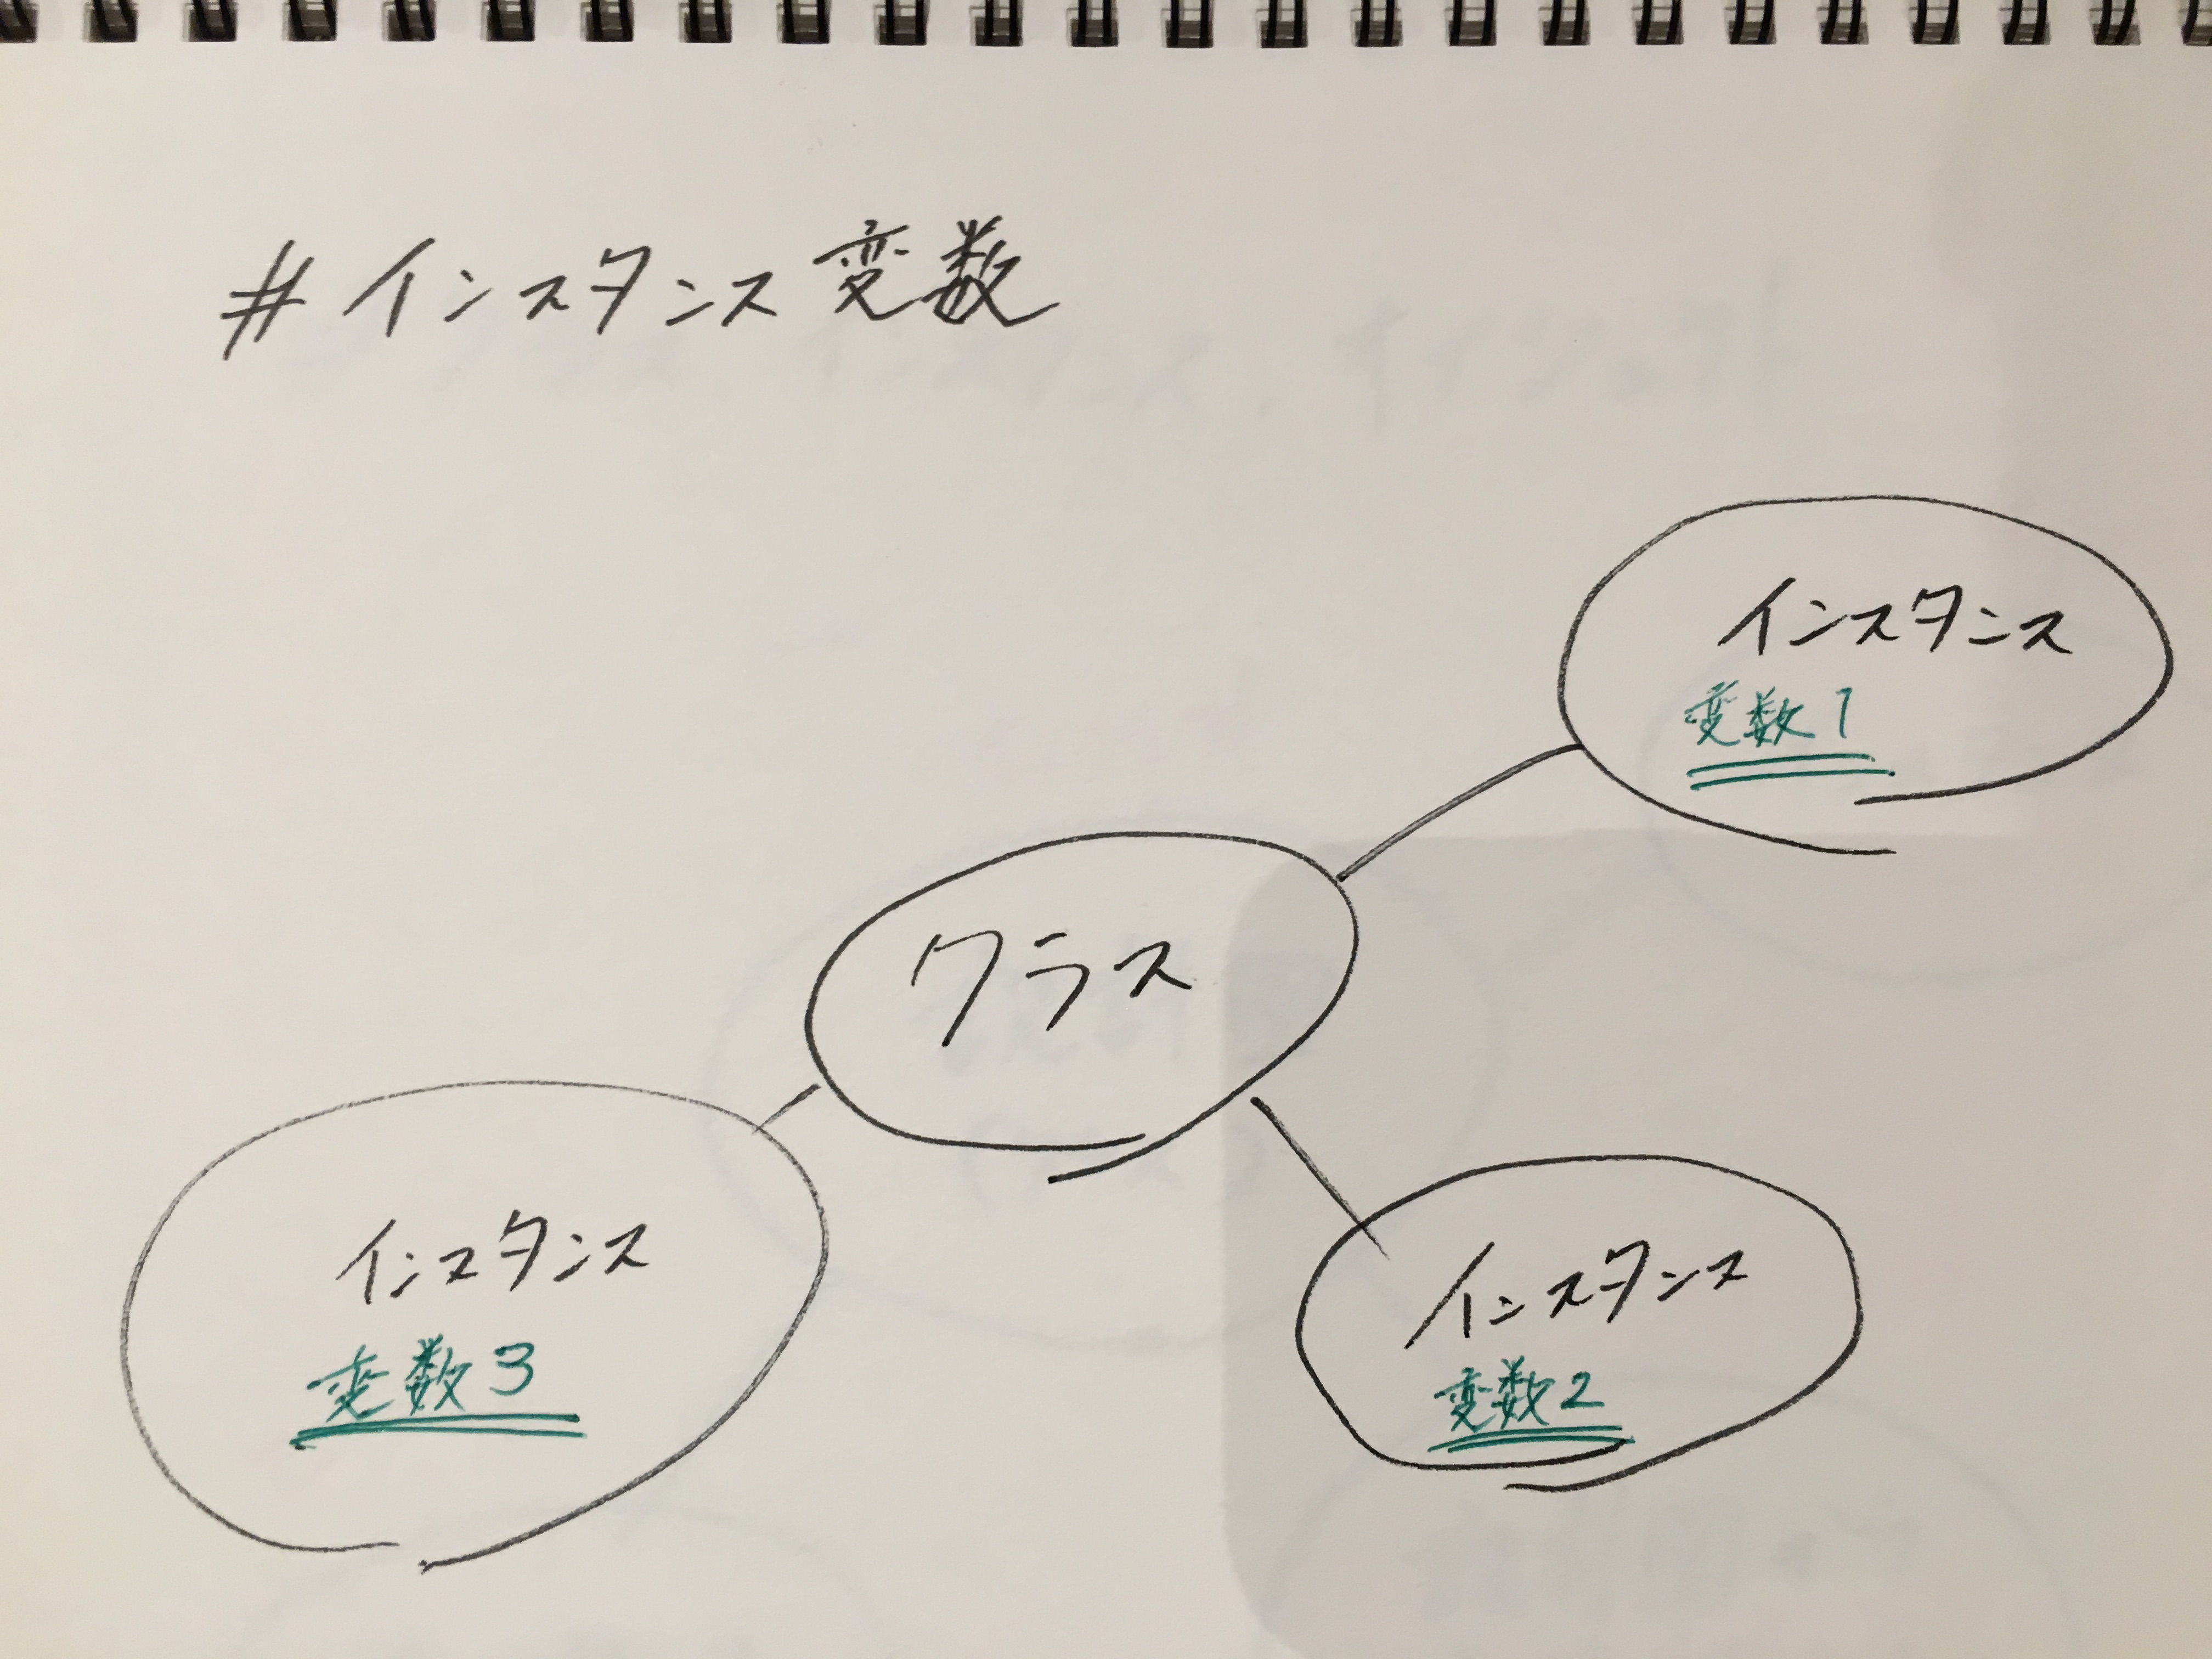 #インスタンス変数
インスタンス
変数1
クラス
インスタンス
変数3
インスタンス
変数2